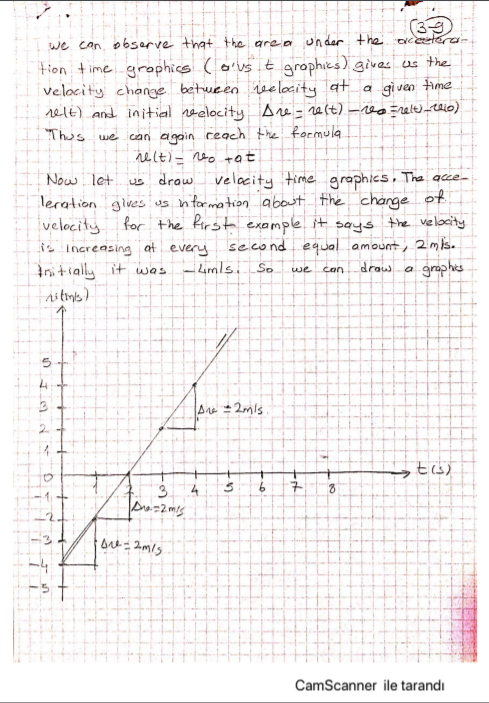 3-9
We can observe that the area under the acceleration
tion time graphics ( a vs t graphics) gives us the
velocity change between velocity at a given time
v(t) and initial velocity Δv = v(t) - v0 = v(t) - v(0)
Thus we can again reach the formula
v(t) = v0 + at
Now let us draw velocity time graphics. The acce-
leration gives us information about the change of
velocity for the first example it says the velocity
is increasing at every second equal amount, 2m/s.
Initially it was -4m/s. So we can draw a graphics
v(m/s)
5
4
3
Δv = 2m/s
2
1
0
t(s)
1 2 3 4 5 6 7 8
-1
Δv=2m/s
-2
-3
Δv = 2m/s
-4
-5
CamScanner ile tarandı